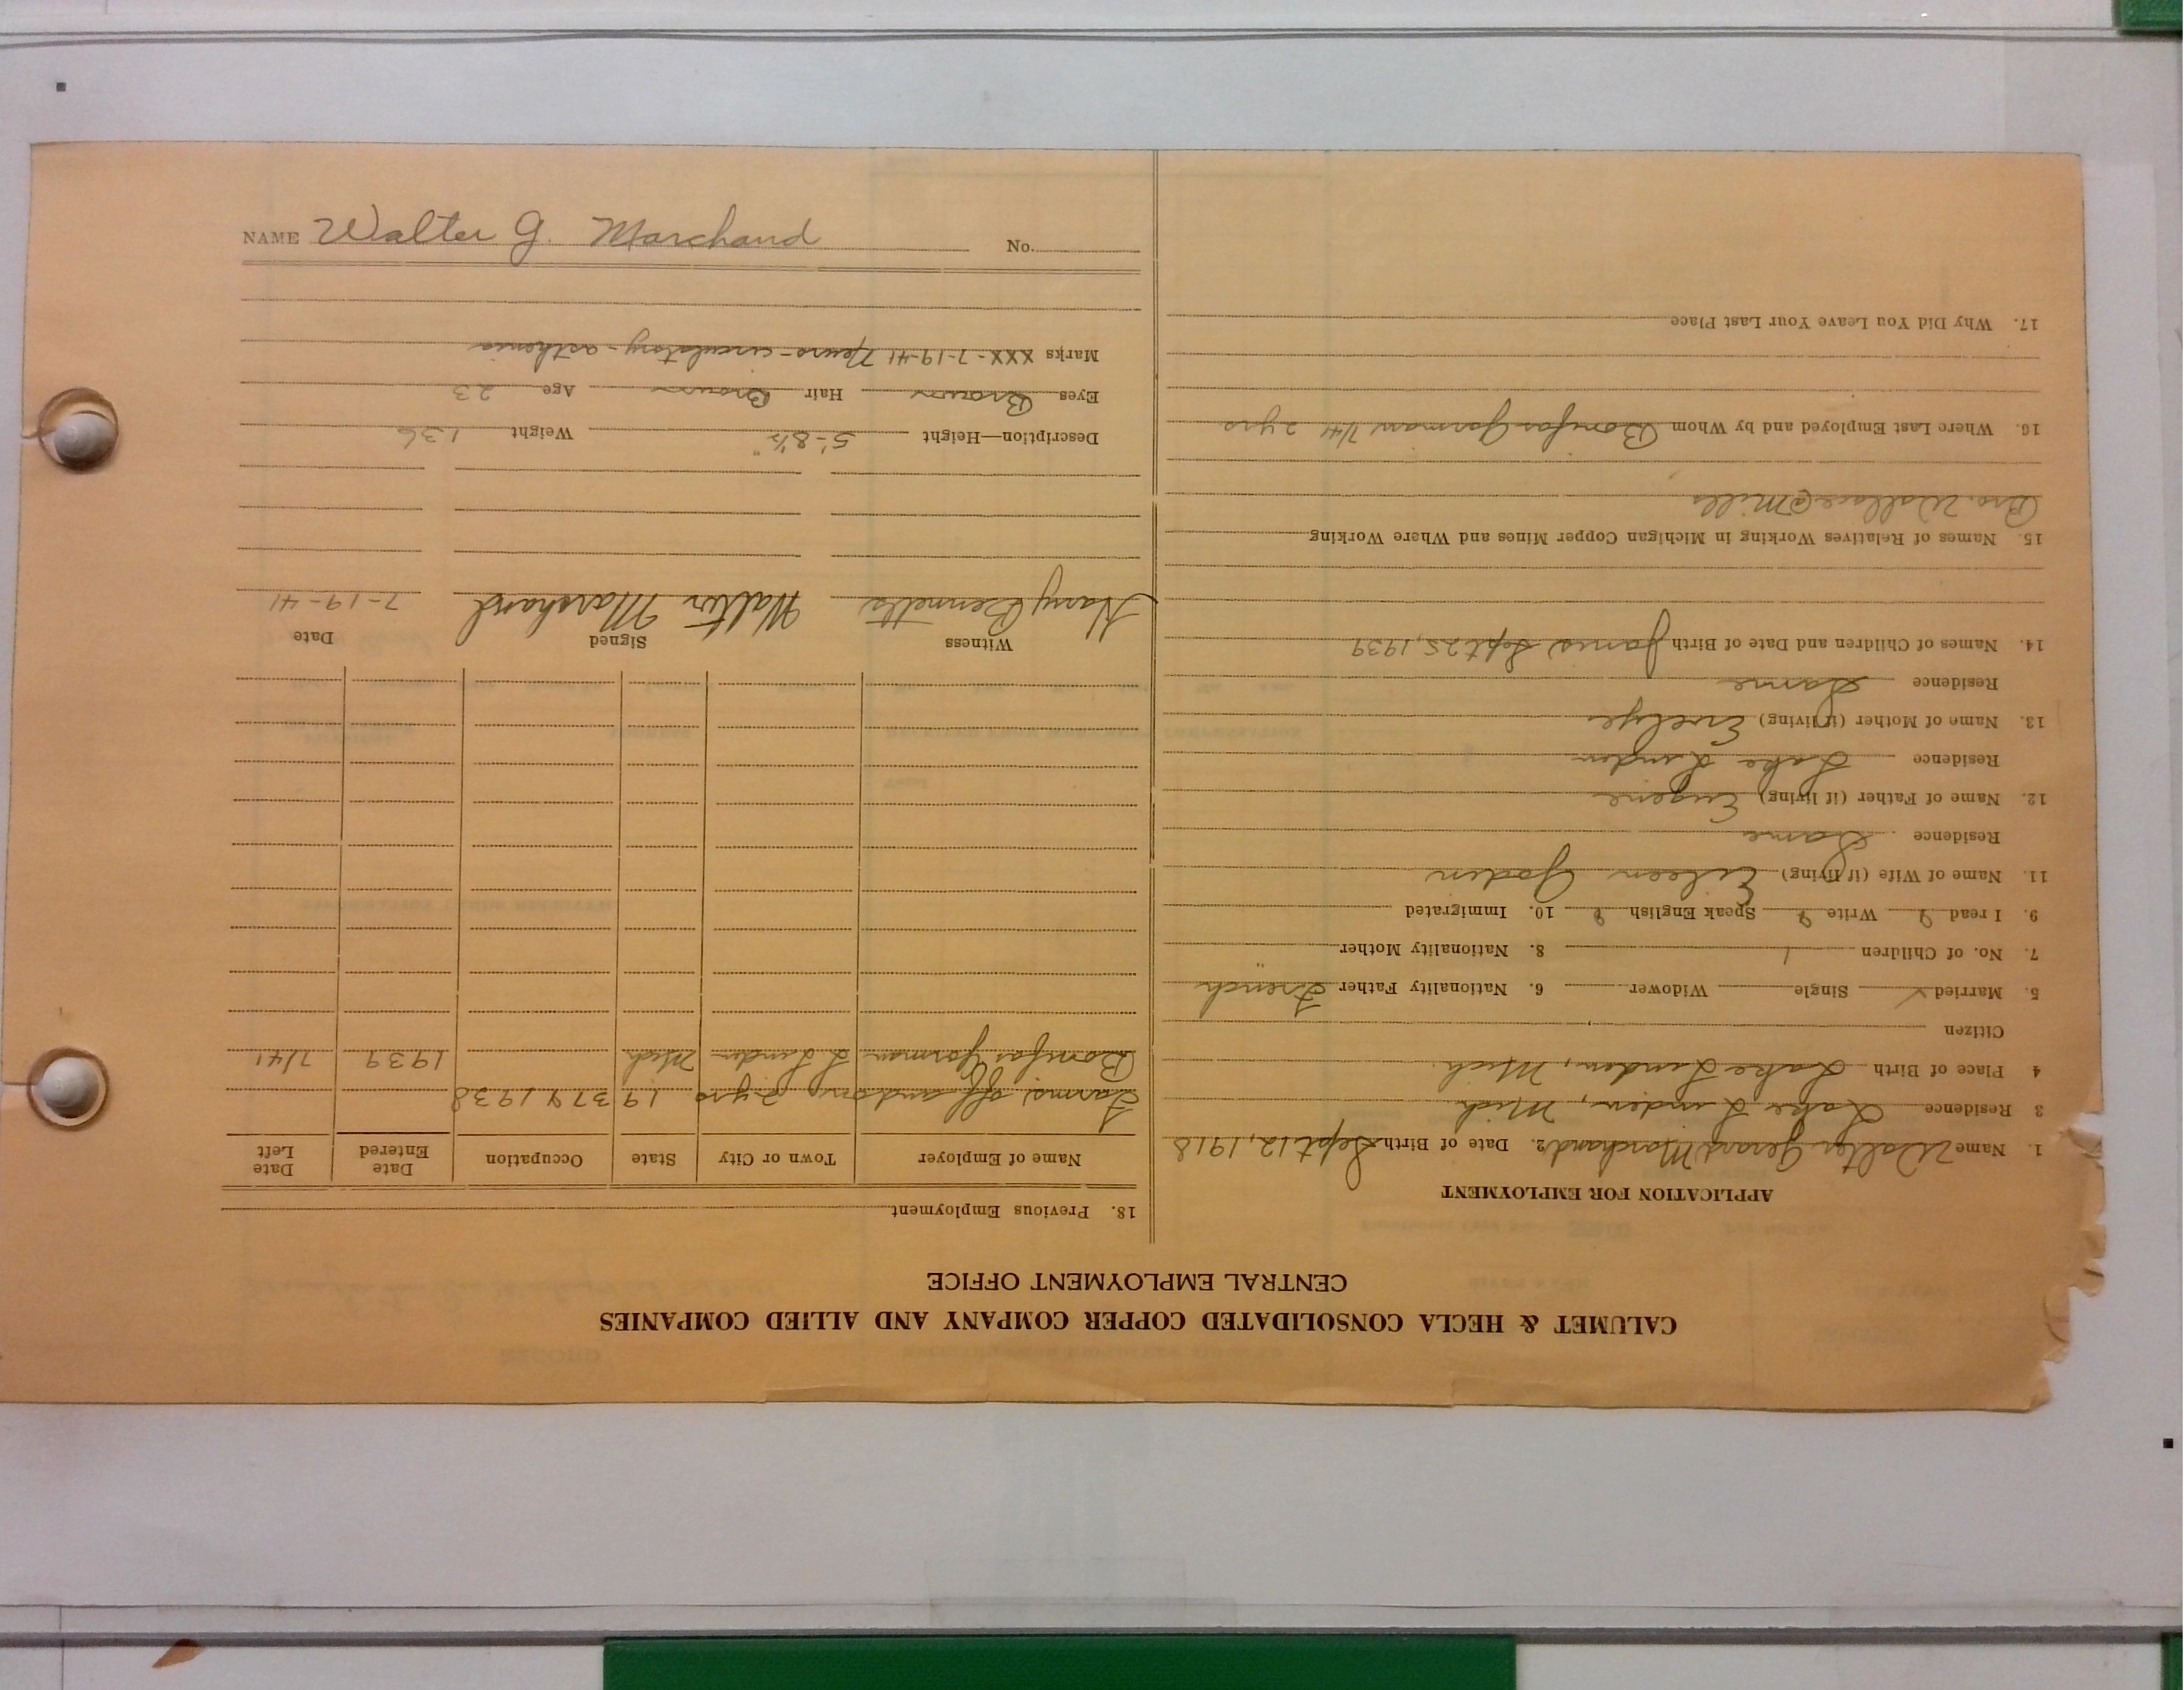 NAME Walter G. Marchand No.
CALUMET & HECLA CONSOLIDATED COPPER COMPANY AND ALLIED COMPANIES
CENTRAL EMPLOYMENT OFFICE
APPLICATION FOR EMPLOYMENT
1. Name Walter Gerard Marchand 2. Date of Birth Sept 12, 1918
3 Residence Lake Linden, Mich
4 Place of Birth Lake Linden, Mich.
Citizen
5. Married ✓ Single Widower 6. Nationality Father French
7. No. of Children 1 8. Nationality Mother "
9. I read Write Speak English 10. Immigrated
11. Name of Wife (if living) Eileen
Residence Same
12. Name of Father (if living) Eugene
Residence Lake Linden
13. Name of Mother (if living) Evelyn
Residence Same
14. Names of Children and Date of Birth James Sept 25, 1939
15. Names of Relatives Working in Michigan Copper Mines and Where Working
Bro. Wallace @ Mills
16. Where Last Employed and by Whom Bonifas Gorman 7/41 2 yrs
17. Why Did You Leave Your Last Place
18. Previous Employment
Name of Employer Town or City State Occupation Date Entered Date Left
Farms off and on 2 yrs 1937 & 1938
Bonifas Gorman L Linden Mich 1939 7/41
Witness Signed Date
Harry Bennetts Walter Marchand 7-19-41
Description—Height 5'-8½" Weight 136
Eyes Brown Hair Brown Age 23
Marks XXX-7-19-41 Neuro-circulatory-asthenia